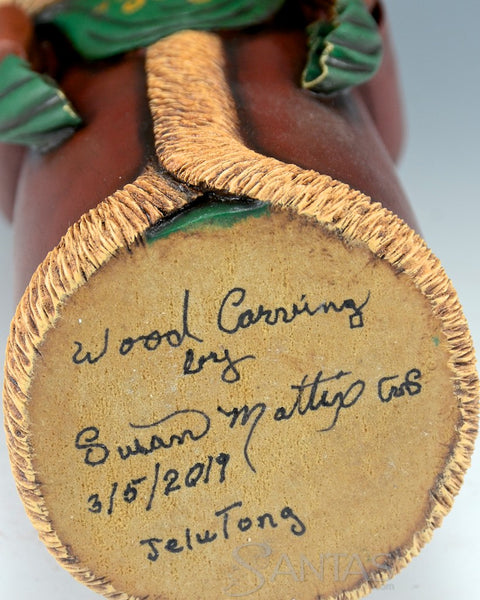 Wood Carving
by
Susan Mattix
3/5/2019
JeluTong
SANTAS